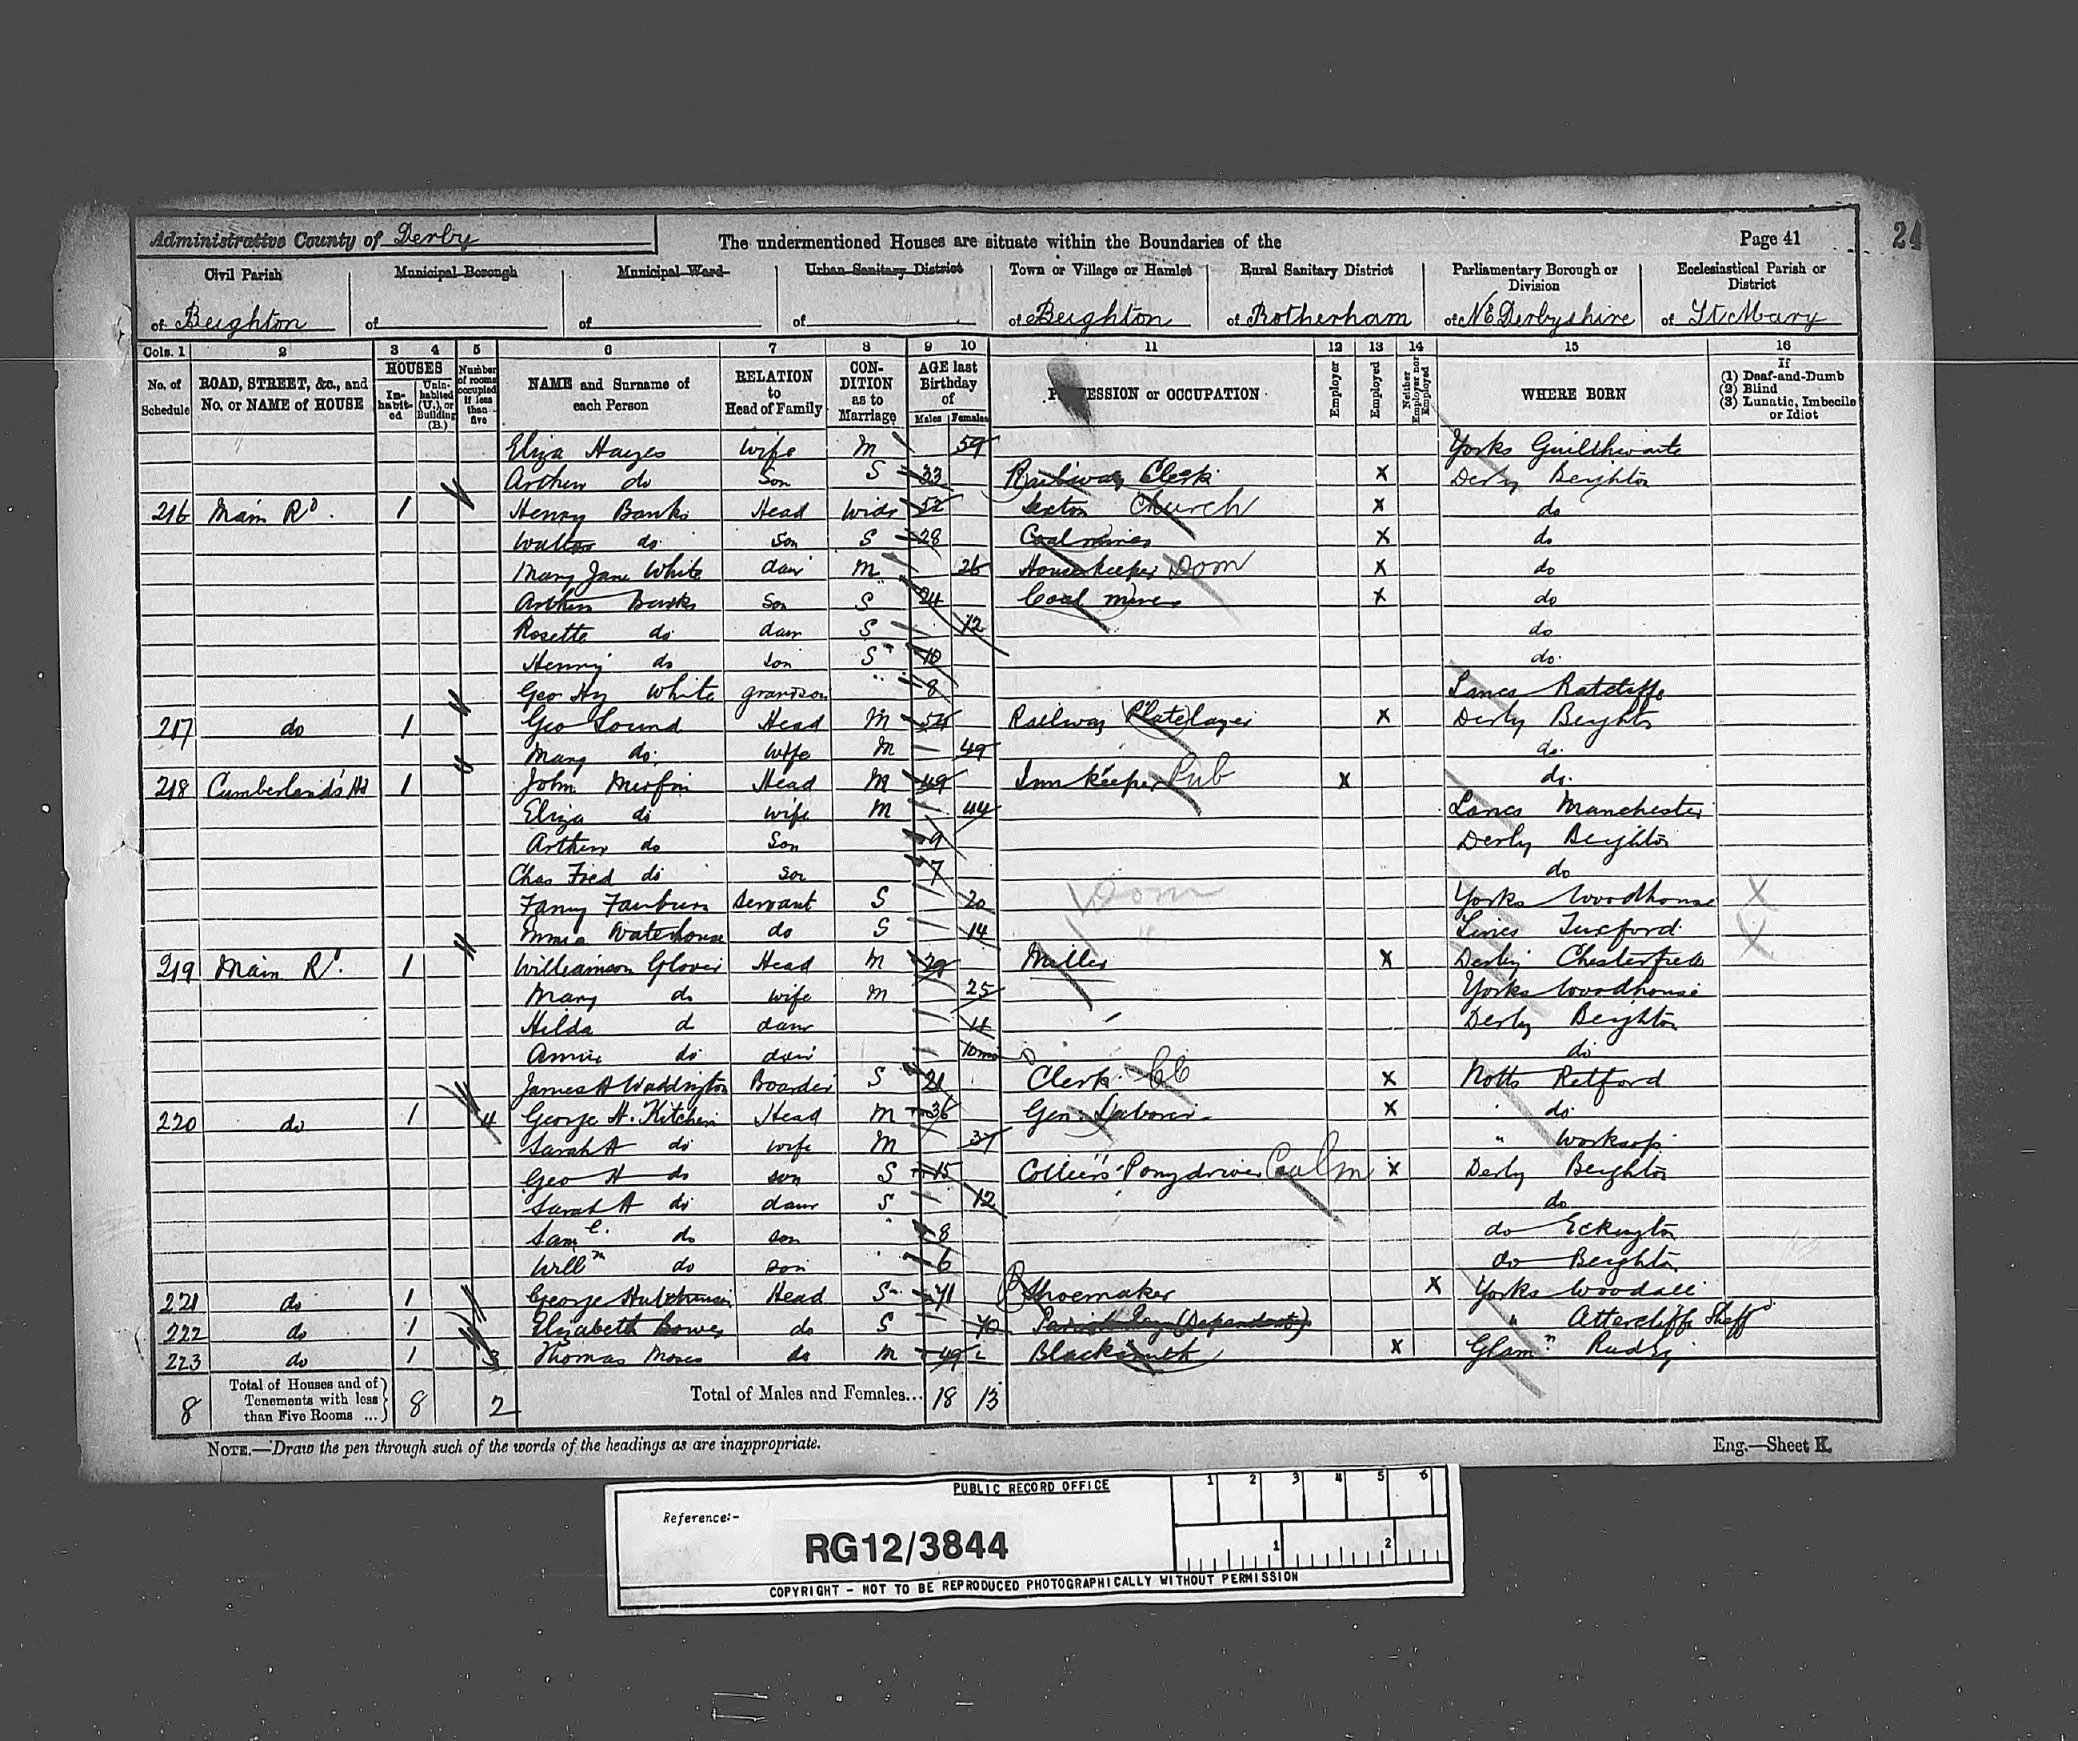 Administrative County of Derby
The undermentioned Houses are situate within the Boundaries of the
Page 41
24
Civil Parish of Beighton
Municipal Borough of
Municipal Ward of
Urban Sanitary District of
Town or Village or Hamlet of Beighton
Rural Sanitary District of Rotherham
Parliamentary Borough or Division of NE Derbyshire
Ecclesiastical Parish or District of St Mary
Cols. 1 2 3 4 5 6 7 8 9 10 11 12 13 14 15 16
No. of Schedule
ROAD, STREET, &c., and No. or NAME of HOUSE
HOUSES
Inhabited
Uninhabited (U.), or Building (B.)
Number of rooms occupied if less than five
NAME and Surname of each Person
RELATION to Head of Family
CONDITION as to Marriage
AGE last Birthday of
Males Females
PROFESSION or OCCUPATION
Employer
Employed
Neither Employer nor Employed
WHERE BORN
If
(1) Deaf-and-Dumb
(2) Blind
(3) Lunatic, Imbecile or Idiot
Eliza Hayes wife M 59 Yorks Guilthwaite
Arthur do Son S 33 Railway Clerk X Derby Beighton
216 Main Rd. 1 Henry Banks Head Widr 52 Sexton Church X do
Walter do Son S 28 Coal miner X do
Mary Jane White daur M 26 Housekeeper Dom X do
Arthur Banks Son S 24 Coal miner X do
Rosette do daur S 12 do
Henry do son S 10 do
Geo Hy White grandson 8 Lancs Ratcliffe
217 do 1 Geo Lound Head M Railway Platelayer X Derby Beighton
Mary do wife M 49 do
218 Cumberland's Hd 1 John Mirfin Head M 49 Inn Keeper Pub X do
Eliza do wife M 44 Lancs Manchester
Arthur do Son 9 Derby Beighton
Chas Fred do son 7 do
Fanny Fairburn Servant S 20 Dom Yorks Woodhouse X
Waterhouse do S 14 " Lincs Tuxford X
219 Main Rd. 1 Williamson Glover Head M 29 Miller X Derby Chesterfield
Mary do wife M 25 Yorks Woodhouse
Hilda do daur Derby Beighton
Annie do daur 10mo do
James H Waddington Boarder S 21 Clerk CC X Notts Retford
220 do 1 4 George H. Kitchen Head M 36 Gen. Laborer X " do
Sarah A do wife M 37 " Worksop
Geo H do son S 15 Colliers' Ponydriver Coal m X Derby Beighton
Sarah A do daur S 12 do
Saml. do son 8 do Eckington
Willm do son 6 do Beighton
221 do 1 George Hutchinson Head S 71 Shoemaker X Yorks Woodall
222 do 1 Elizabeth Bowes do S 70 Parish Pay (Dependent) " Attercliffe Sheffd
223 do 1 3 Thomas Moses do M 49 Blacksmith X Glamn Rudry
8 Total of Houses and of Tenements with less than Five Rooms ... 8 2 Total of Males and Females... 18 13
NOTE.—Draw the pen through such of the words of the headings as are inappropriate.
Eng.—Sheet K.
PUBLIC RECORD OFFICE
1 2 3 4 5 6
Reference:-
RG12/3844
1 2
COPYRIGHT - NOT TO BE REPRODUCED PHOTOGRAPHICALLY WITHOUT PERMISSION